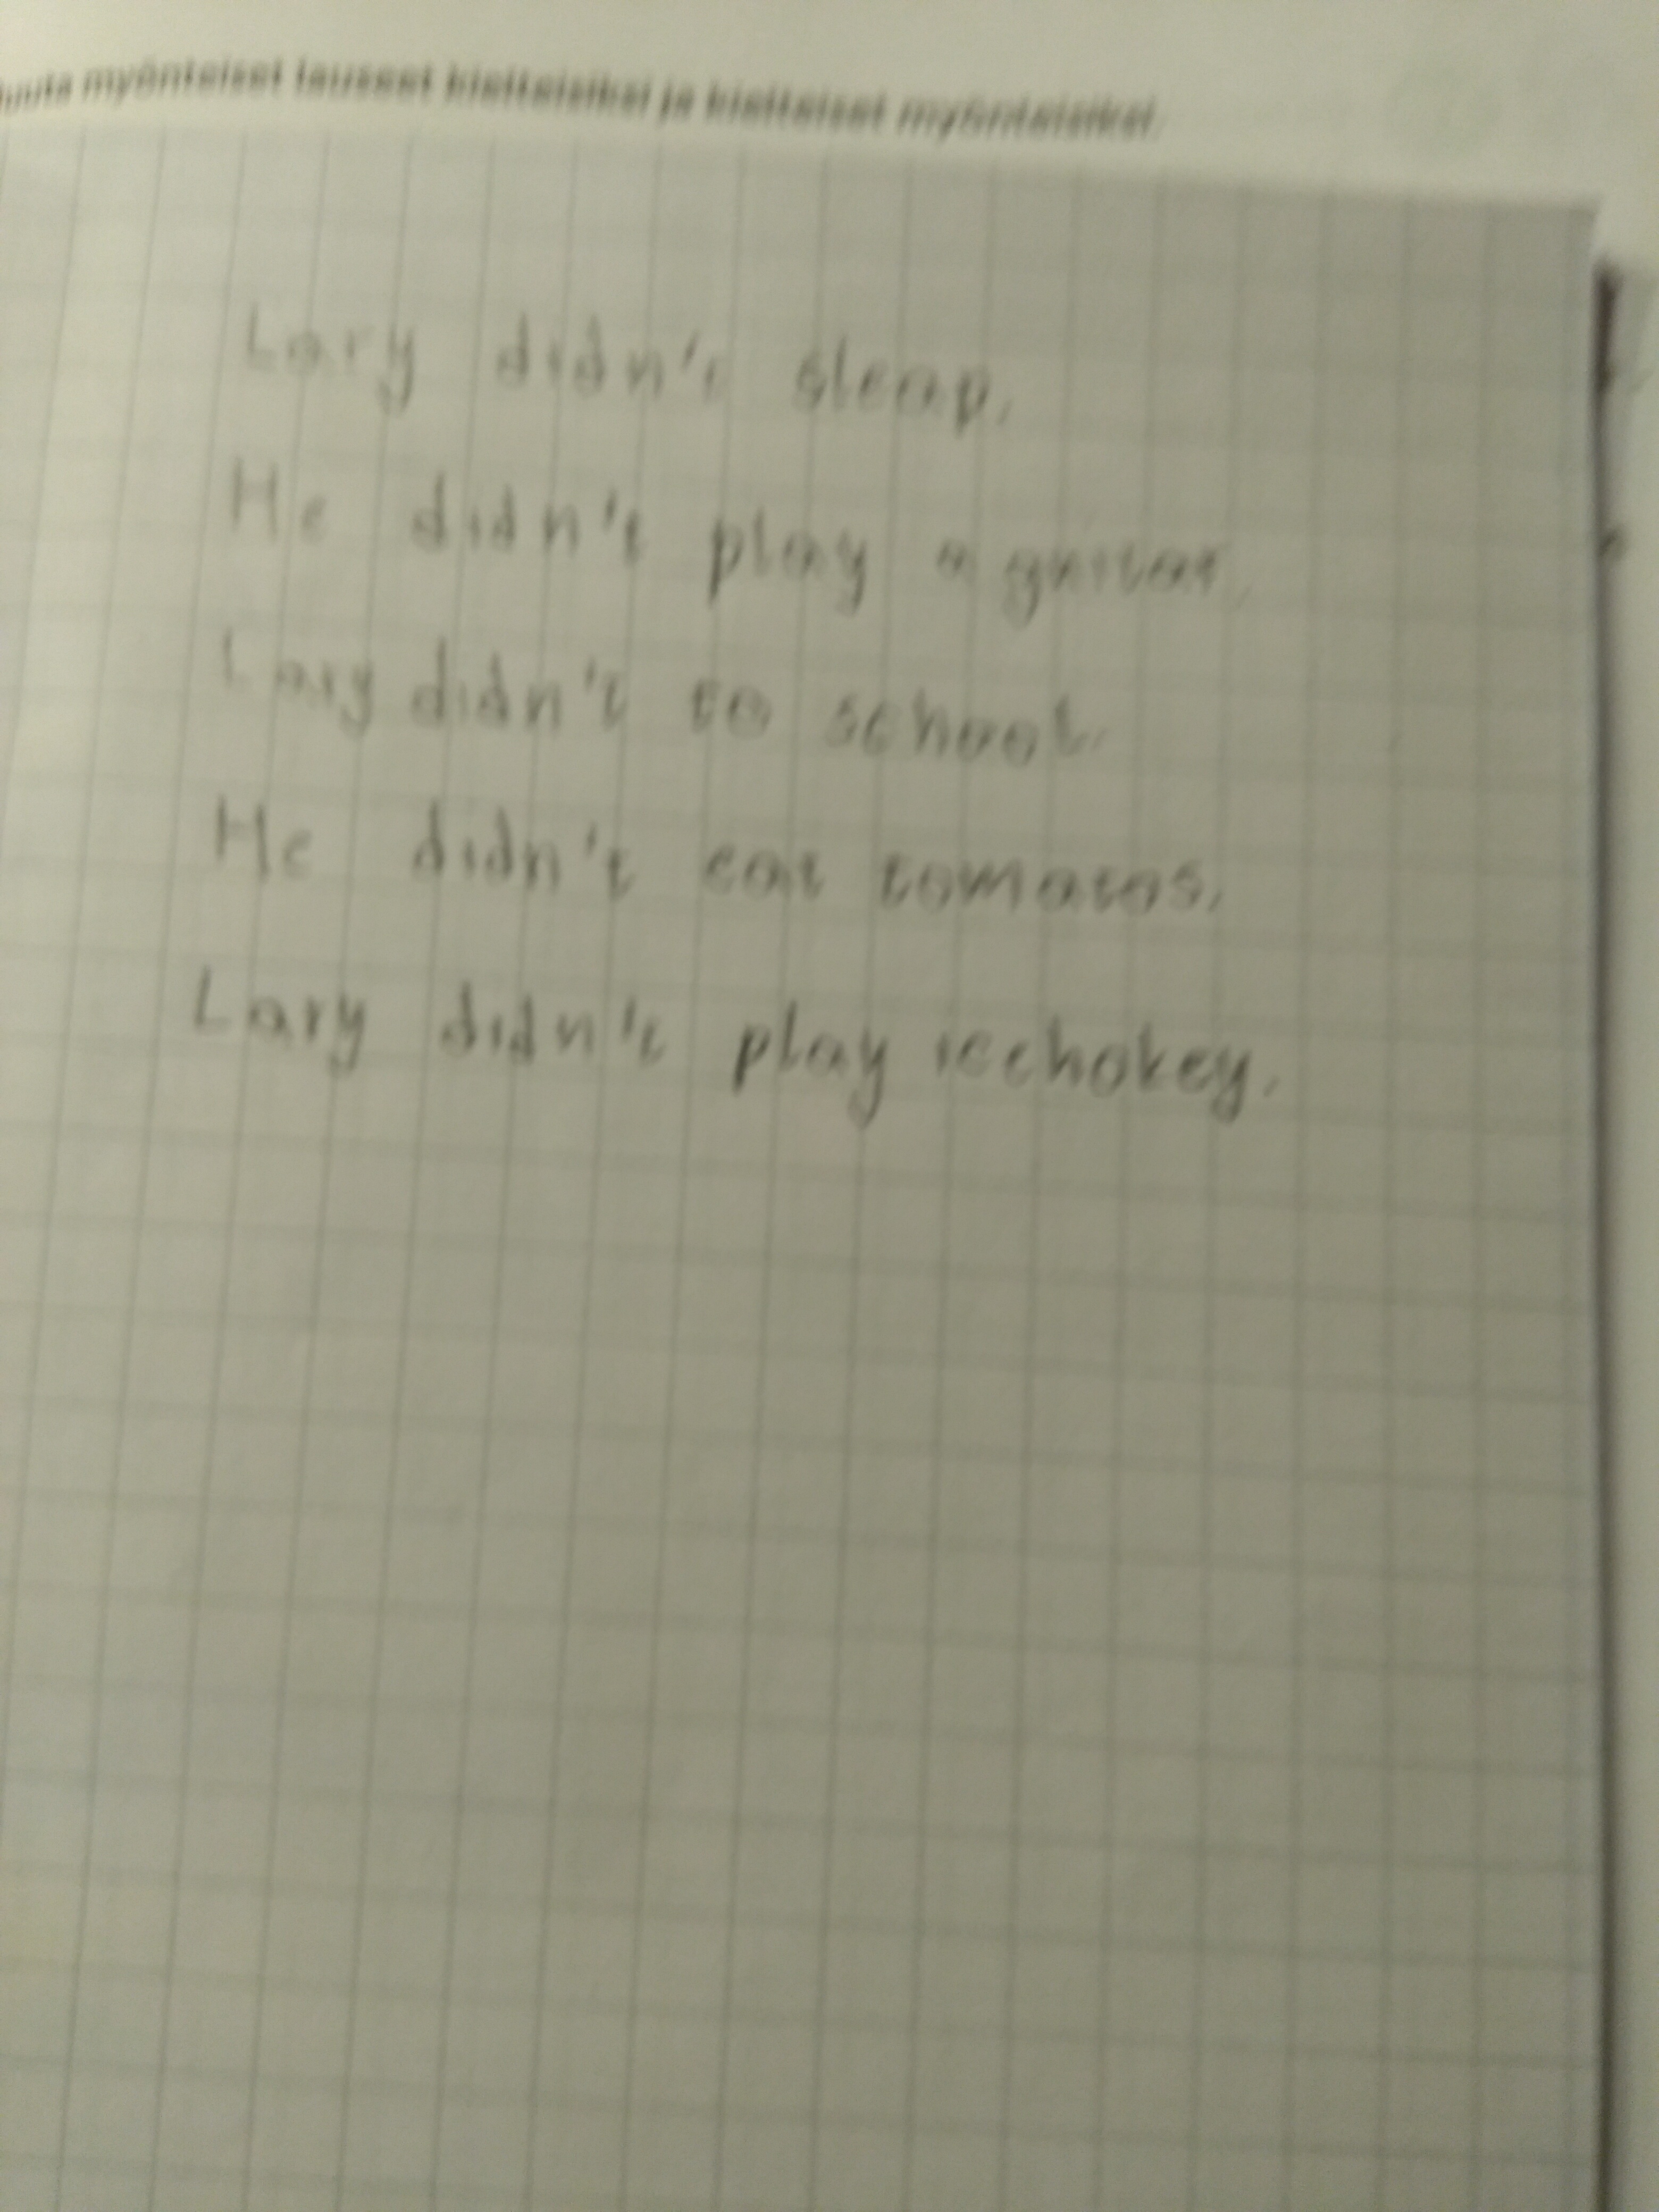 myönteiset lauseet kielteisiksi ja kielteiset myönteisiksi.
Lary didn't sleap.
He didn't play a guitar.
Lary didn't to school.
He didn't eat tomatos.
Lary didn't play icehokey.